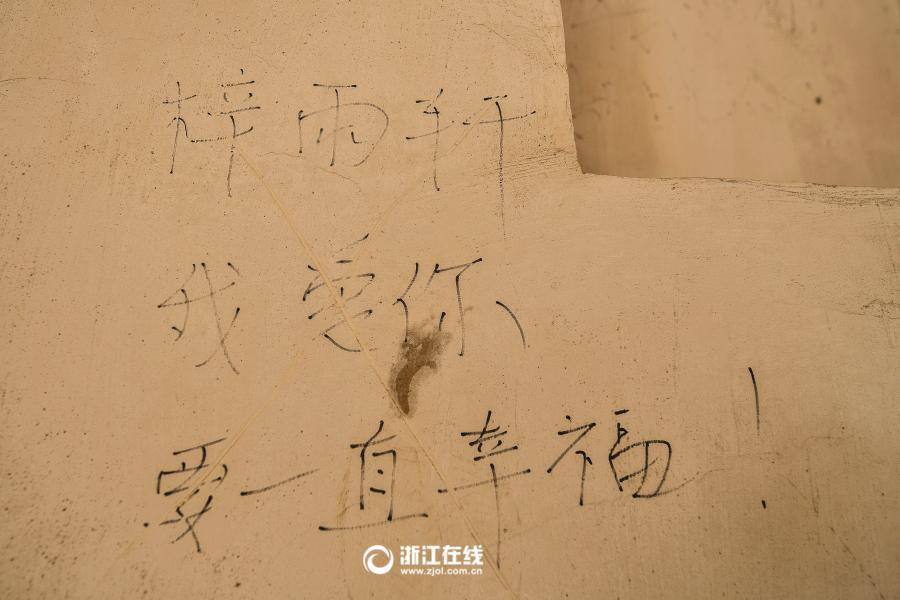 梓雨轩
我爱你
要一直幸福!
浙江在线
www.zjol.com.cn